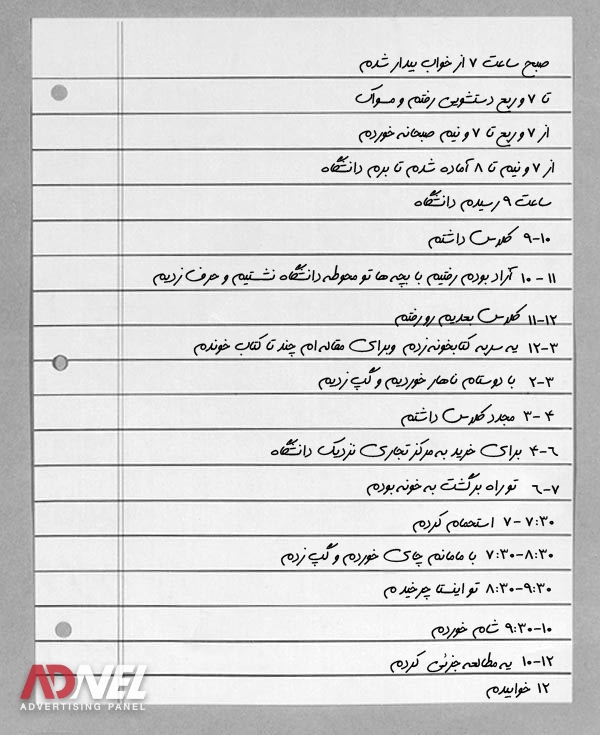 صبح ساعت ۷ از خواب بیدار شدم
تا ۷ و ربع دستشویی رفتم و مسواک
از ۷ و ربع تا ۷ و نیم صبحانه خوردم
از ۷ و نیم تا ۸ آماده شدم تا برم دانشگاه
ساعت ۹ رسیدم دانشگاه
۹-۱۰ کلاس داشتم
۱۰ - ۱۱ آزاد بودم رفتیم با بچه ها تو محوطه دانشگاه نشستیم و حرف زدیم
۱۱-۱۲ کلاس بعدیم رو رفتم
۱۲-۳ یه سر به کتابخونه زدم وبرای مقاله ام چند تا کتاب خوندم
۲-۳ با دوستام ناهار خوردیم و گپ زدیم
۳-۴ مجدد کلاس داشتم
۴-۶ برای خرید به مرکز تجاری نزدیک دانشگاه
۶-۷ تو راه برگشت به خونه بودم
۷-۷:۳۰ استحمام کردم
۷:۳۰-۸:۳۰ با مامانم چای خوردم و گپ زدم
۸:۳۰-۹:۳۰ تو اینستا چرخیدم
۹:۳۰-۱۰ شام خوردم
۱۰-۱۲ یه مطالعه جزئی کردم
۱۲ خوابیدم
ADNEL
ADVERTISING PANEL